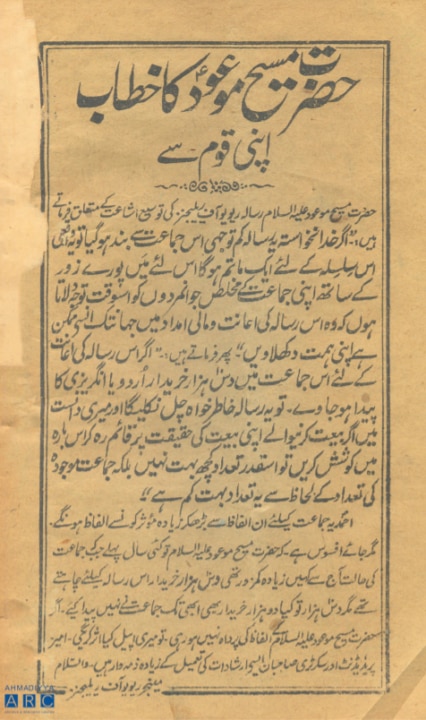 حضرت مسیح موعودؑ کا خطاب
اپنی قوم سے
حضرت مسیح موعود علیہ السلام رسالہ ریویو آف ریلیجنز کی توسیع اشاعت کے متعلق فرماتے
ہیں:۔ "اگر خدانخواستہ یہ رسالہ کم توجہی اس جماعت سے بند ہو گیا تو یہ واقعی
اس سلسلہ کے لئے ایک ماتم ہوگا اس لئے میں پورے زور
کے ساتھ اپنی جماعت کے مخلص جوانمردوں کو اسوقت توجہ دلاتا
ہوں کہ وہ اس رسالہ کی اعانت و مالی امداد میں جہانتک انسے ممکن
ہے اپنی ہمت دکھلاویں" پھر فرماتے ہیں:۔ "اگر اس رسالہ کی اعانت
کے لئے اس جماعت میں دس ہزار خریدار اُردو یا انگریزی کا
پیدا ہو جاوے۔ تو یہ رسالہ خاطر خواہ چل نکلیگا اور میری دانست
میں اگر بیعت کرنیوالے اپنی بیعت کی حقیقت پر قائم رہ کر اس بارہ
میں کوشش کریں تو اسقدر تعداد کچھ بہت نہیں بلکہ جماعت موجودہ
کی تعداد کے لحاظ سے یہ تعداد بہت کم ہے"
احمدیہ جماعت کیلئے ان الفاظ سے بڑھکر زیادہ مؤثر کونسے الفاظ ہونگے۔
مگر جائے افسوس ہے۔ کہ حضرت مسیح موعود علیہ السلام تو کئی سال پہلے جبکہ جماعت
کی حالت آج سے کہیں زیادہ کمزور تھی دس ہزار خریدار اس رسالہ کیلئے چاہتے
تھے مگر دس ہزار تو کیا دو ہزار خریدار بھی ابھی تک جماعت نے نہیں پیدا کیئے۔ اگر
حضرت مسیح موعود علیہ السلام کے الفاظ کی پرواہ نہیں ہو رہی، تو میری اپیل کیا اثر کریگی۔ امیر
پریذیڈنٹ اور سکرٹری صاحبان ارشادات کی تعمیل کے زیادہ ذمہ دار ہیں۔ والسلام
مینیجر ریویو آف ریلیجنز
AHMADIYYA
ARC